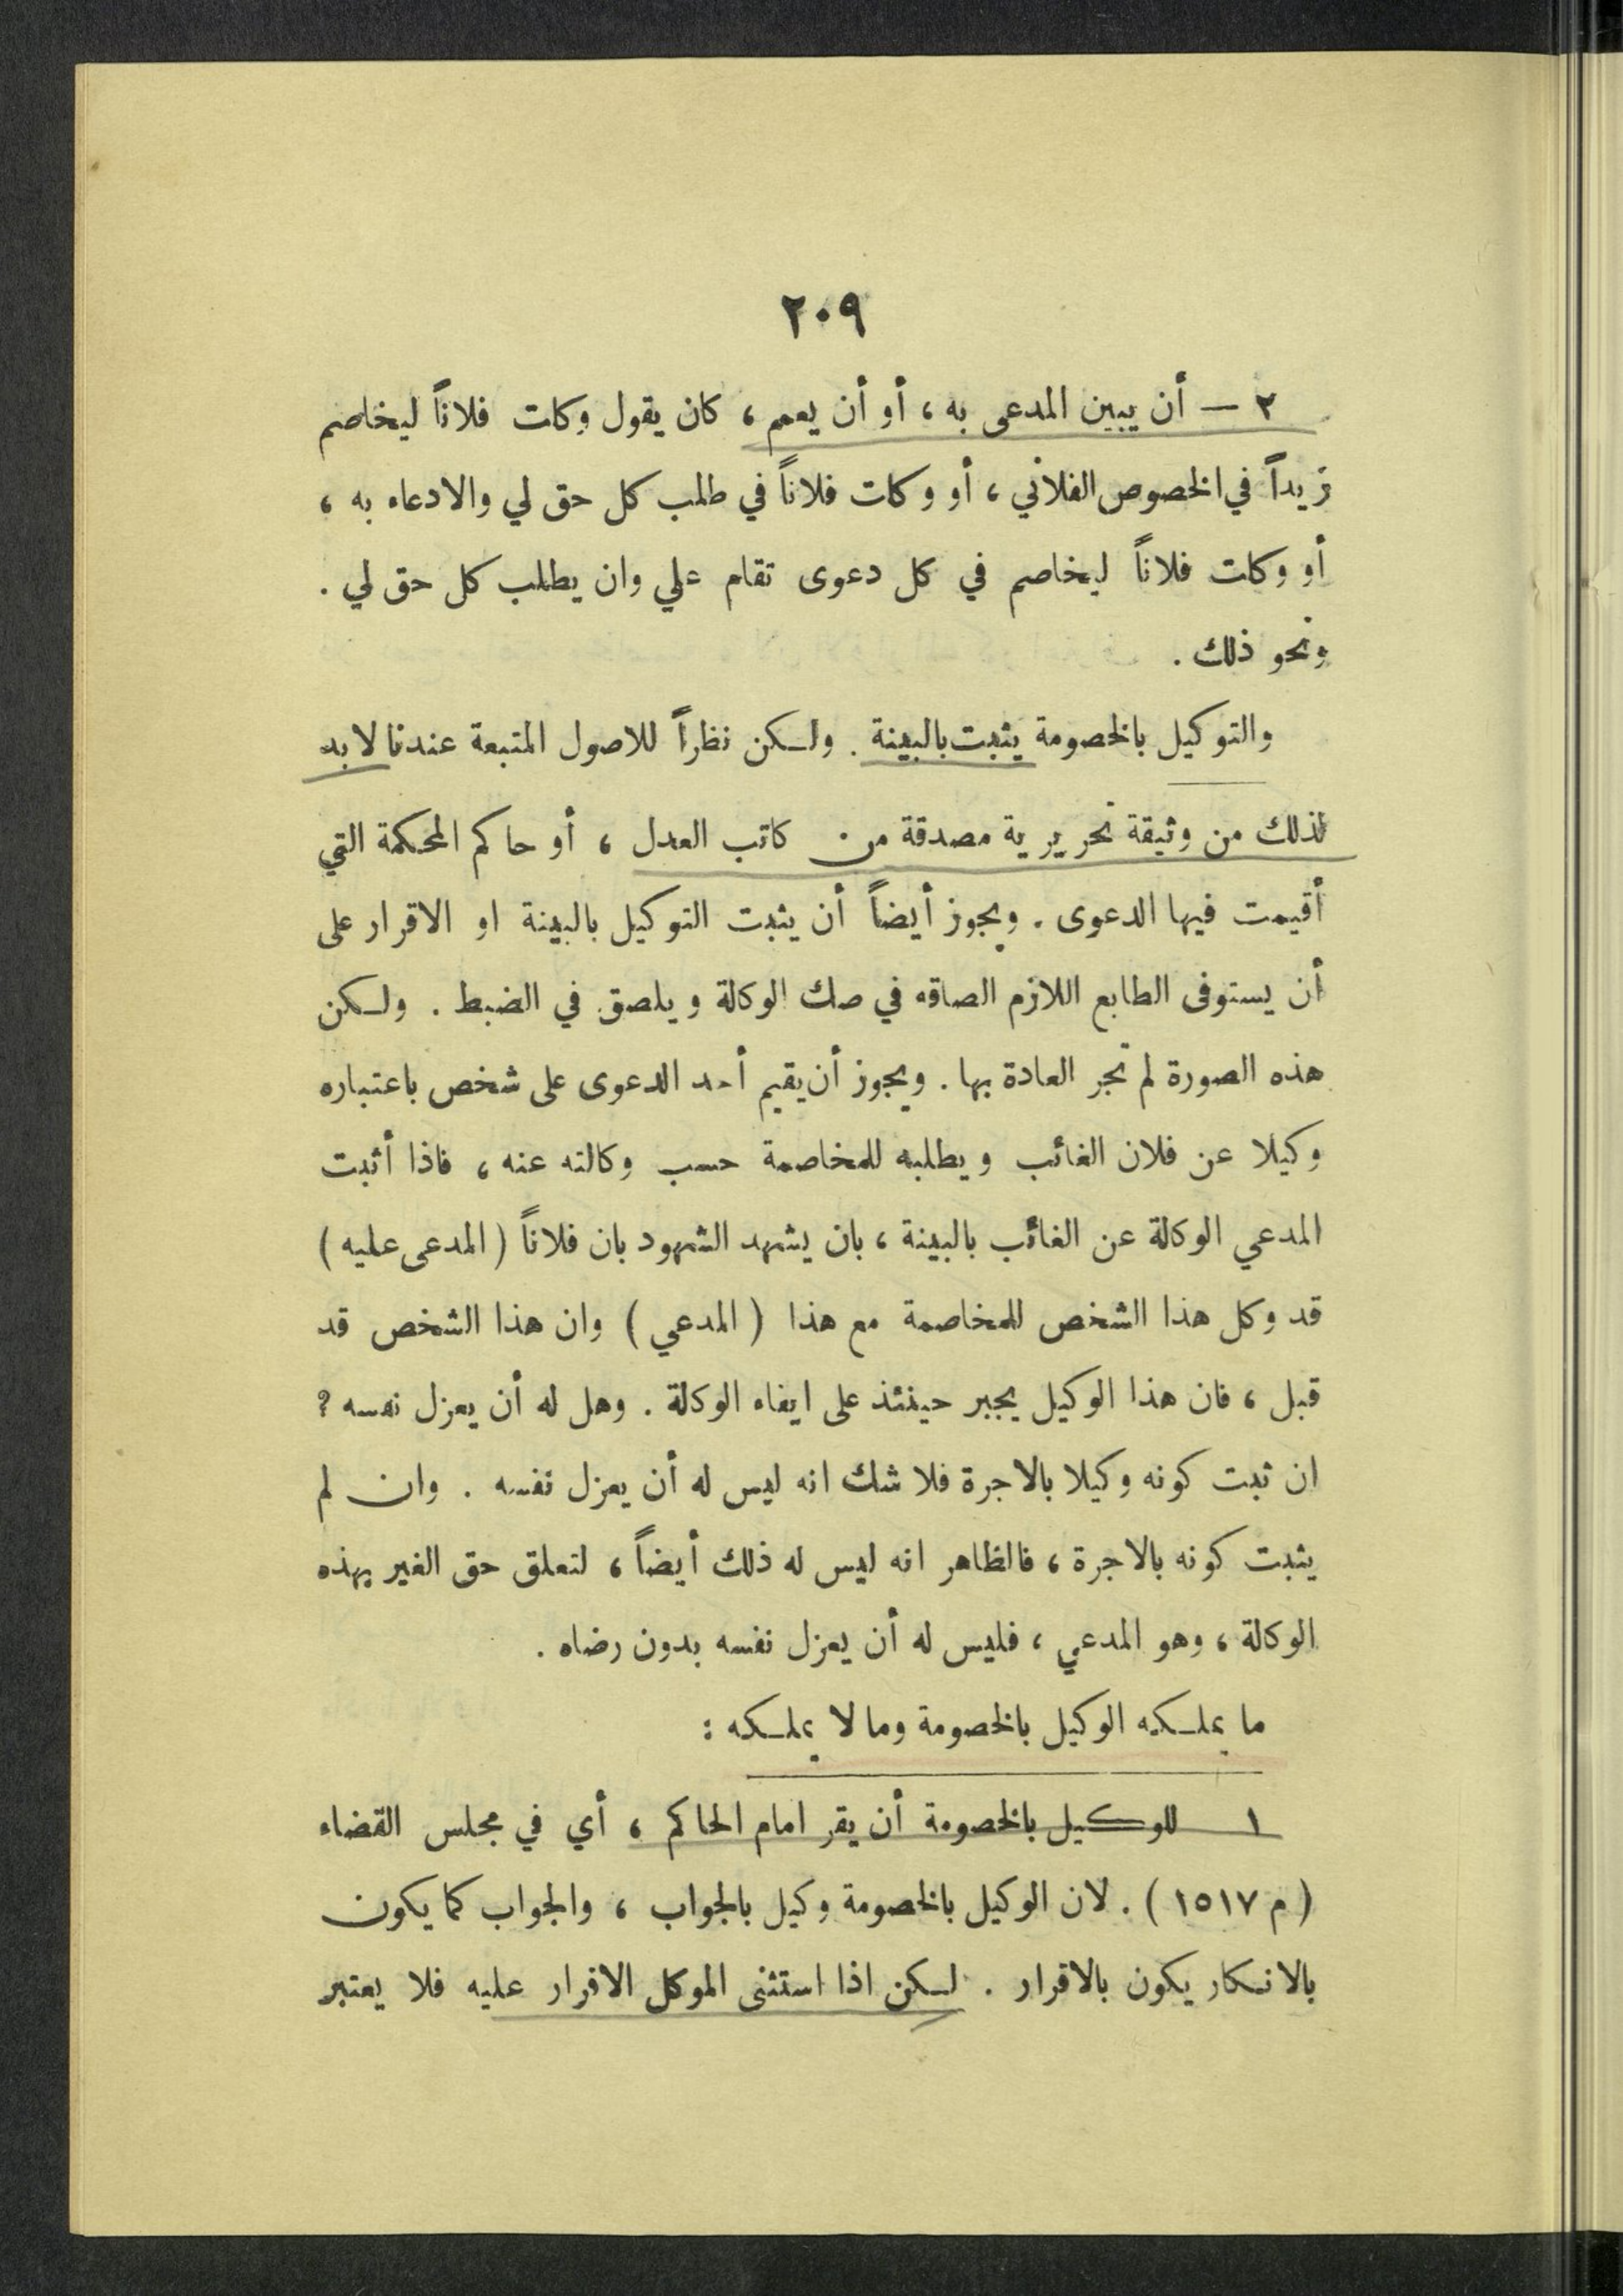 ٢٠٩
٢ — أن يبين المدعى به ، أو أن يعمم ، كان يقول وكلت فلاناً ليخاصم
زيداً في الخصوص الفلاني ، أو وكلت فلاناً في طلب كل حق لي والادعاء به ،
أو وكلت فلاناً ليخاصم في كل دعوى تقام علي وان يطلب كل حق لي .
ونحو ذلك .
والتوكيل بالخصومة يثبت بالبينة . ولكن نظراً للاصول المتبعة عندنا لابد
لذلك من وثيقة تحريرية مصدقة من كاتب العدل ، أو حاكم المحكمة التي
أقيمت فيها الدعوى . ويجوز أيضاً أن يثبت التوكيل بالبينة او الاقرار على
أن يستوفى الطابع اللازم الصاقه في صك الوكالة ويلصق في الضبط . ولكن
هذه الصورة لم تجر العادة بها . ويجوز أن يقيم أحد الدعوى على شخص باعتباره
وكيلا عن فلان الغائب ويطلبه للمخاصمة حسب وكالته عنه ، فاذا أثبت
المدعي الوكالة عن الغائب بالبينة ، بان يشهد الشهود بان فلاناً ( المدعى عليه )
قد وكل هذا الشخص للمخاصمة مع هذا ( المدعي ) وان هذا الشخص قد
قبل ، فان هذا الوكيل يجبر حينئذ على ايفاء الوكالة . وهل له أن يعزل نفسه ?
ان ثبت كونه وكيلا بالاجرة فلا شك انه ليس له أن يعزل نفسه . وان لم
يثبت كونه بالاجرة ، فالظاهر انه ليس له ذلك أيضاً ، لتعلق حق الغير بهذه
الوكالة ، وهو المدعي ، فليس له أن يعزل نفسه بدون رضاه .
ما يملكه الوكيل بالخصومة وما لا يملكه :
١ للوكيل بالخصومة أن يقر امام الحاكم ، أي في مجلس القضاء
( م ١٥١٧ ) . لان الوكيل بالخصومة وكيل بالجواب ، والجواب كما يكون
بالانكار يكون بالاقرار . لكن اذا استثنى الموكل الاقرار عليه فلا يعتبر